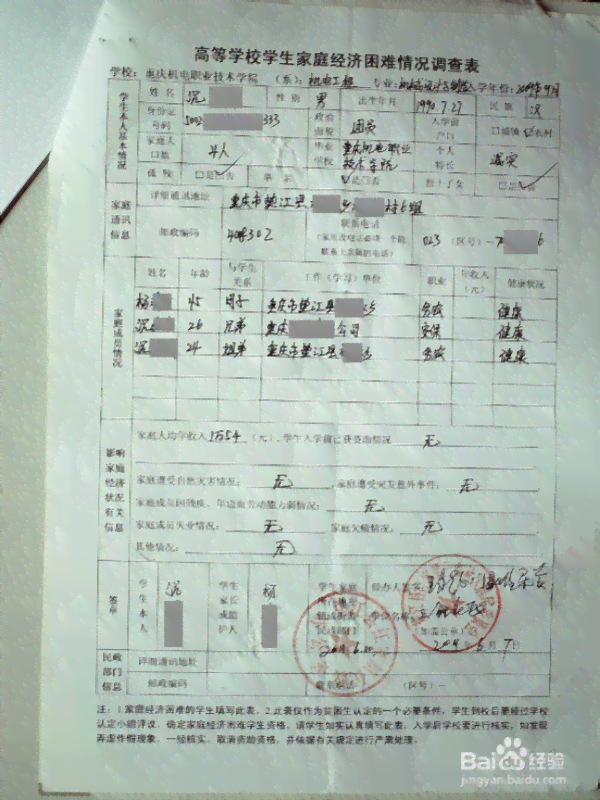 高等学校学生家庭经济困难情况调查表
学校：重庆机电职业技术学院 （系）：机电工程 专业：机械设计与制造 入学年份：2009年9月
学生本人基本情况
姓名 沉 性别 男 出生年月 1990.7.27 民族 汉
身份证号码 500 333 政治面貌 团员 入学前户口 □城镇 □农村
家庭人口数 4人 毕业学校 重庆机电职业技术学院 个人特长 诚实
孤残 □是□否 单亲 □是□否 烈士子女 □是□否
家庭通讯信息
详细通讯地址 重庆市垫江县 乡 村6组
邮政编码 408302 联系电话 023 （区号）-7 6
家庭成员情况
姓名 年龄 与学生关系 工作（学习）单位 职业 年收入（元） 健康状况
杨 45 母子 重庆市垫江县 务农 健康
沉 26 兄弟 重庆 公司 安保 健康
沉 24 姐弟 重庆市垫江县 务农 健康
影响家庭经济状况有关信息
家庭人均年收入 （元）。学生入学前已获资助情况 无
家庭遭受自然灾害情况： 无 。家庭遭受突发意外事件： 无
家庭成员因残疾、年迈而劳动能力弱情况： 无
家庭成员失业情况： 无 家庭欠债情况： 无
其他情况： 无
签章
学生本人 沉
学生家长或监护人 杨
学生家庭 经办人签字
单位名称
（加盖公章）
6月7日
民政部门信息
详细通讯地址
邮政编码 联系电话 （区号）-
注：1.家庭经济困难的学生填写此表。2.此表仅作为贫困生认定的一个必要条件，学生到校后要经过学校
认定小组评议，确定家庭经济困难学生资格，请学生如实认真填写此表。入学后学校要进行核实，如发现
弄虚作假现象，一经核实，取消资助资格，并依据有关规定进行严肃处理。
Baidu经验
jingyan.baidu.com